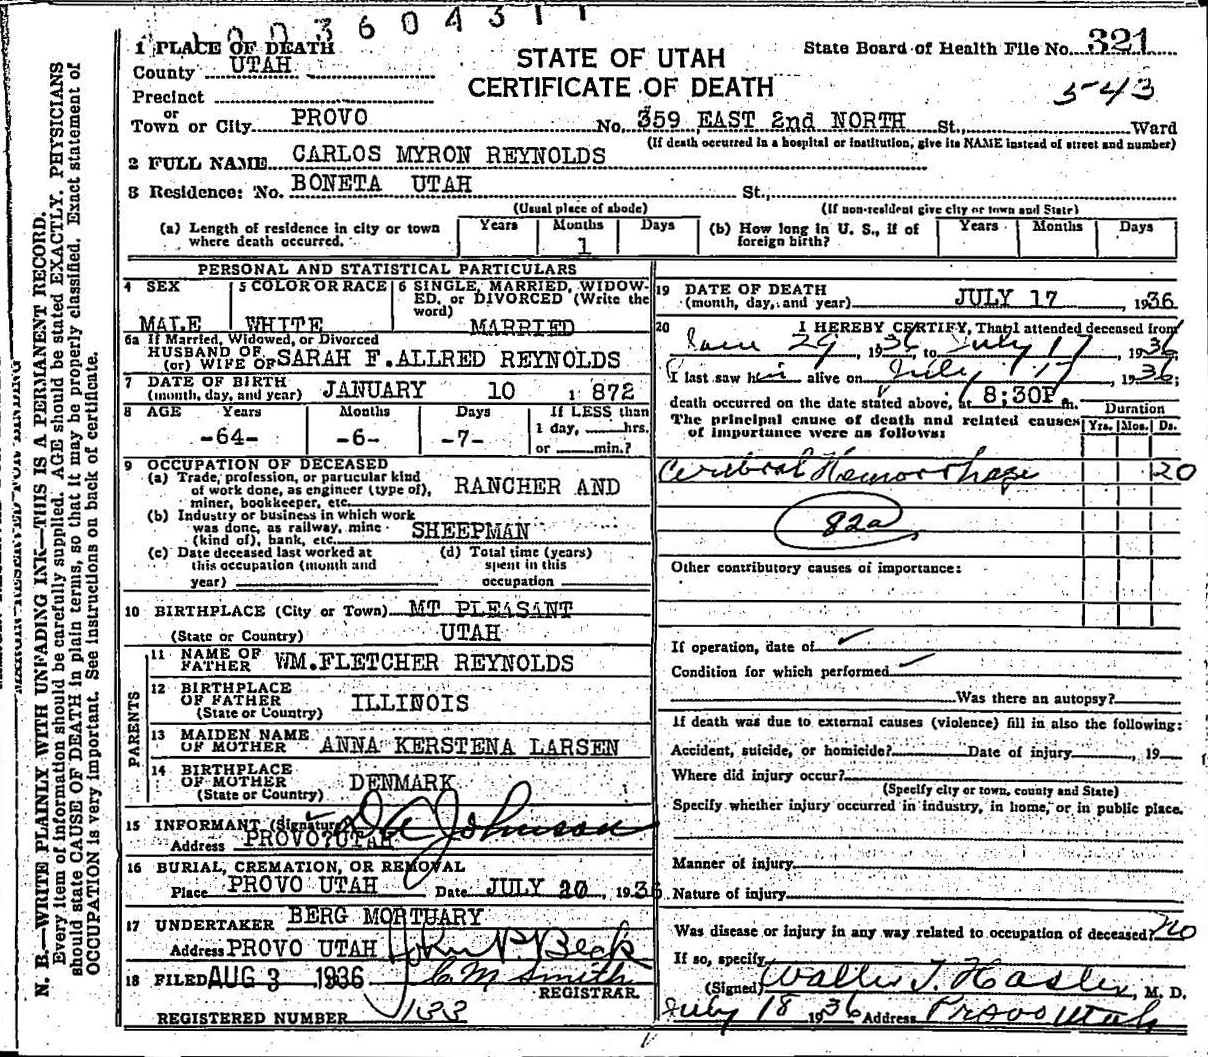 1003604311
1 PLACE OF DEATH
County UTAH
Precinct
or
Town or City PROVO No. 359 EAST 2nd NORTH St., Ward
STATE OF UTAH
CERTIFICATE OF DEATH
State Board of Health File No. 321
543
(If death occurred in a hospital or institution, give its NAME instead of street and number)
2 FULL NAME CARLOS MYRON REYNOLDS
3 Residence: No. BONETA UTAH St.,
(Usual place of abode) (If non-resident give city or town and State)
(a) Length of residence in city or town where death occurred. Years Months 1 Days
(b) How long in U. S., if of foreign birth? Years Months Days
PERSONAL AND STATISTICAL PARTICULARS
4 SEX
MALE
5 COLOR OR RACE
WHITE
6 SINGLE, MARRIED, WIDOW-
ED, or DIVORCED (Write the
word)
MARRIED
6a If Married, Widowed, or Divorced
HUSBAND OF
(or) WIFE OF SARAH F. ALLRED REYNOLDS
7 DATE OF BIRTH
(month, day, and year) JANUARY 10 1872
8 AGE Years Months Days If LESS than
-64- -6- -7- 1 day, hrs.
or min.?
9 OCCUPATION OF DECEASED
(a) Trade, profession, or particular kind
of work done, as engineer (type of),
miner, bookkeeper, etc. RANCHER AND
(b) Industry or business in which work
was done, as railway, mine
(kind of), bank, etc. SHEEPMAN
(c) Date deceased last worked at
this occupation (month and
year)
(d) Total time (years)
spent in this
occupation
10 BIRTHPLACE (City or Town) MT PLEASANT
(State or Country) UTAH
PARENTS
11 NAME OF
FATHER WM. FLETCHER REYNOLDS
12 BIRTHPLACE
OF FATHER
(State or Country) ILLINOIS
13 MAIDEN NAME
OF MOTHER ANNA KERSTENA LARSEN
14 BIRTHPLACE
OF MOTHER
(State or Country) DENMARK
15 INFORMANT (Signature) Johnson
Address PROVO?UTAH
16 BURIAL, CREMATION, OR REMOVAL
Place PROVO UTAH Date JULY 20, 1936
17 UNDERTAKER BERG MORTUARY
Address PROVO UTAH John P. Beck
18 FILED AUG 3 1936 C M Smith
REGISTRAR
REGISTERED NUMBER 133
19 DATE OF DEATH
(month, day, and year) JULY 17 1936
20 I HEREBY CERTIFY, That I attended deceased from
June 29, 1936, to July 17, 1936,
I last saw him alive on July 17, 1936;
death occurred on the date stated above, at 8:30P m.
The principal cause of death and related causes
of importance were as follows:
Duration
Yrs. Mos. Ds.
Cerebral Hemorrhage 20
82a
Other contributory causes of importance:
If operation, date of
Condition for which performed
Was there an autopsy?
If death was due to external causes (violence) fill in also the following:
Accident, suicide, or homicide? Date of injury , 19
Where did injury occur?
(Specify city or town, county and State)
Specify whether injury occurred in industry, in home, or in public place.
Manner of injury
Nature of injury
Was disease or injury in any way related to occupation of deceased? no
If so, specify
(Signed) Walter T. Hasler, M. D.
July 18 1936 Address Provo Utah
N. B.—WRITE PLAINLY WITH UNFADING INK—THIS IS A PERMANENT RECORD.
Every item of information should be carefully supplied. AGE should be stated EXACTLY. PHYSICIANS
should state CAUSE OF DEATH in plain terms, so that it may be properly classified. Exact statement of
OCCUPATION is very important. See instructions on back of certificate.